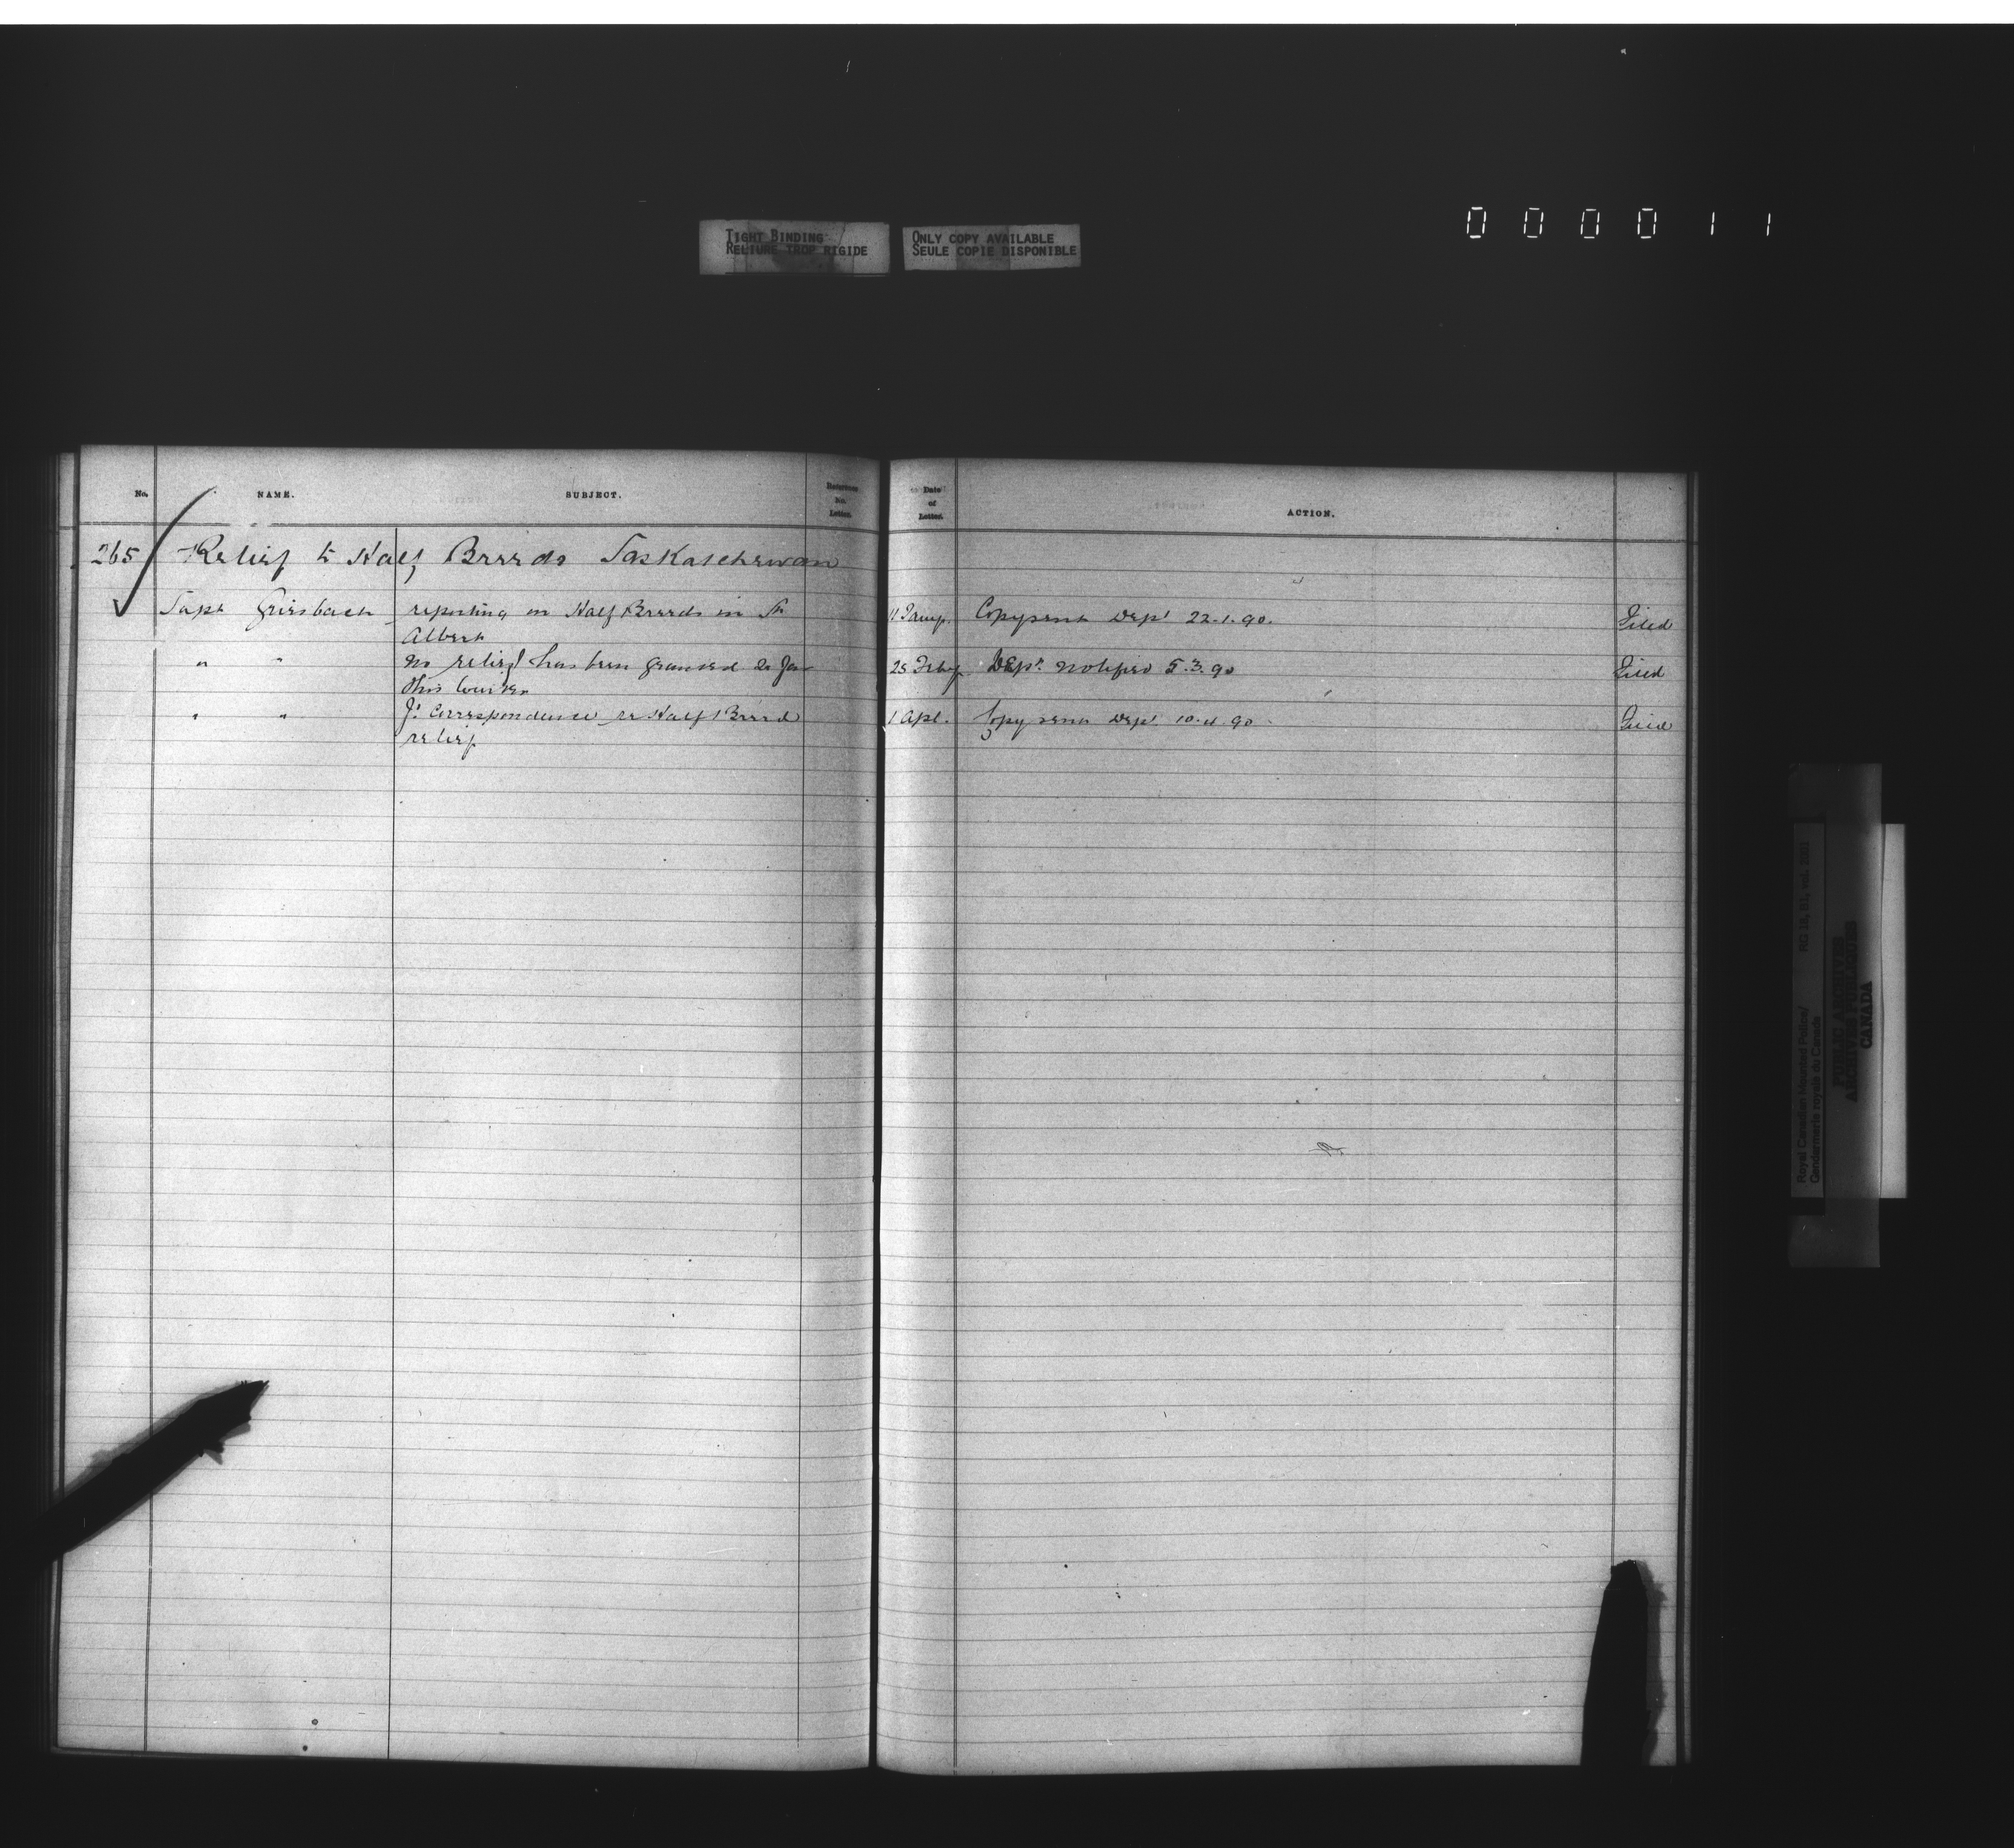 000011
TIGHT BINDING
RELIURE TROP RIGIDE
ONLY COPY AVAILABLE
SEULE COPIE DISPONIBLE
No. NAME. SUBJECT. Reference No. Letter. Date of Letter. ACTION.
265 Relief to Half Breeds Saskatchewan
Supt Griesbach reporting on Half Breeds in St 11 Jany. Copy sent Dept 22.1.90. Filed
Albert
" " No relief has been granted so far 25 Feby Dept. notified 5.3.90 Filed
this winter
" " Correspondence re Half Breed 1 Apl. Copy sent Dept 10.4.90 Filed
relief
Royal Canadian Mounted Police/
Gendarmerie royale du Canada
RG 18, B1, vol.
PUBLIC ARCHIVES
ARCHIVES PUBLIQUES
CANADA